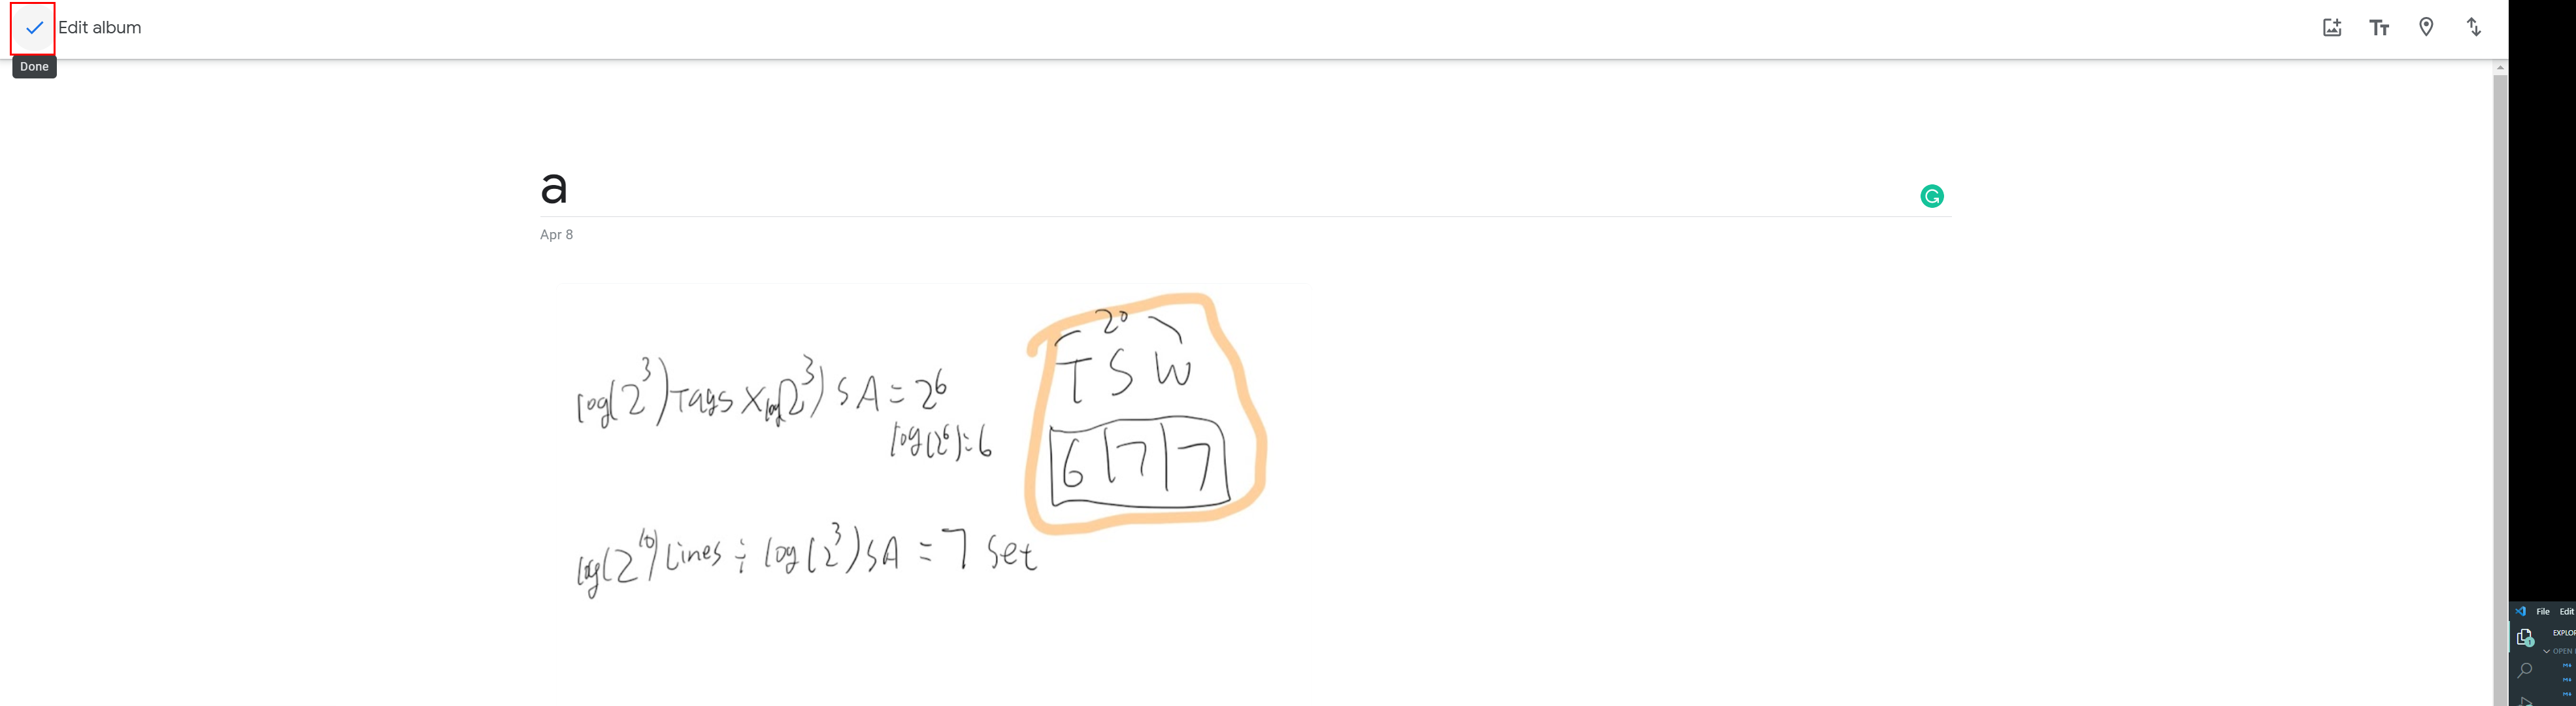 Edit album
Done
a
Apr 8
log(2^3) Tags x log(2^3) SA = 2^6
log(2^6) = 6
20
T S W
6 7 7
log(2^10) Lines ÷ log(2^3) SA = 7 Set
File Edit
EXPLOR
OPEN